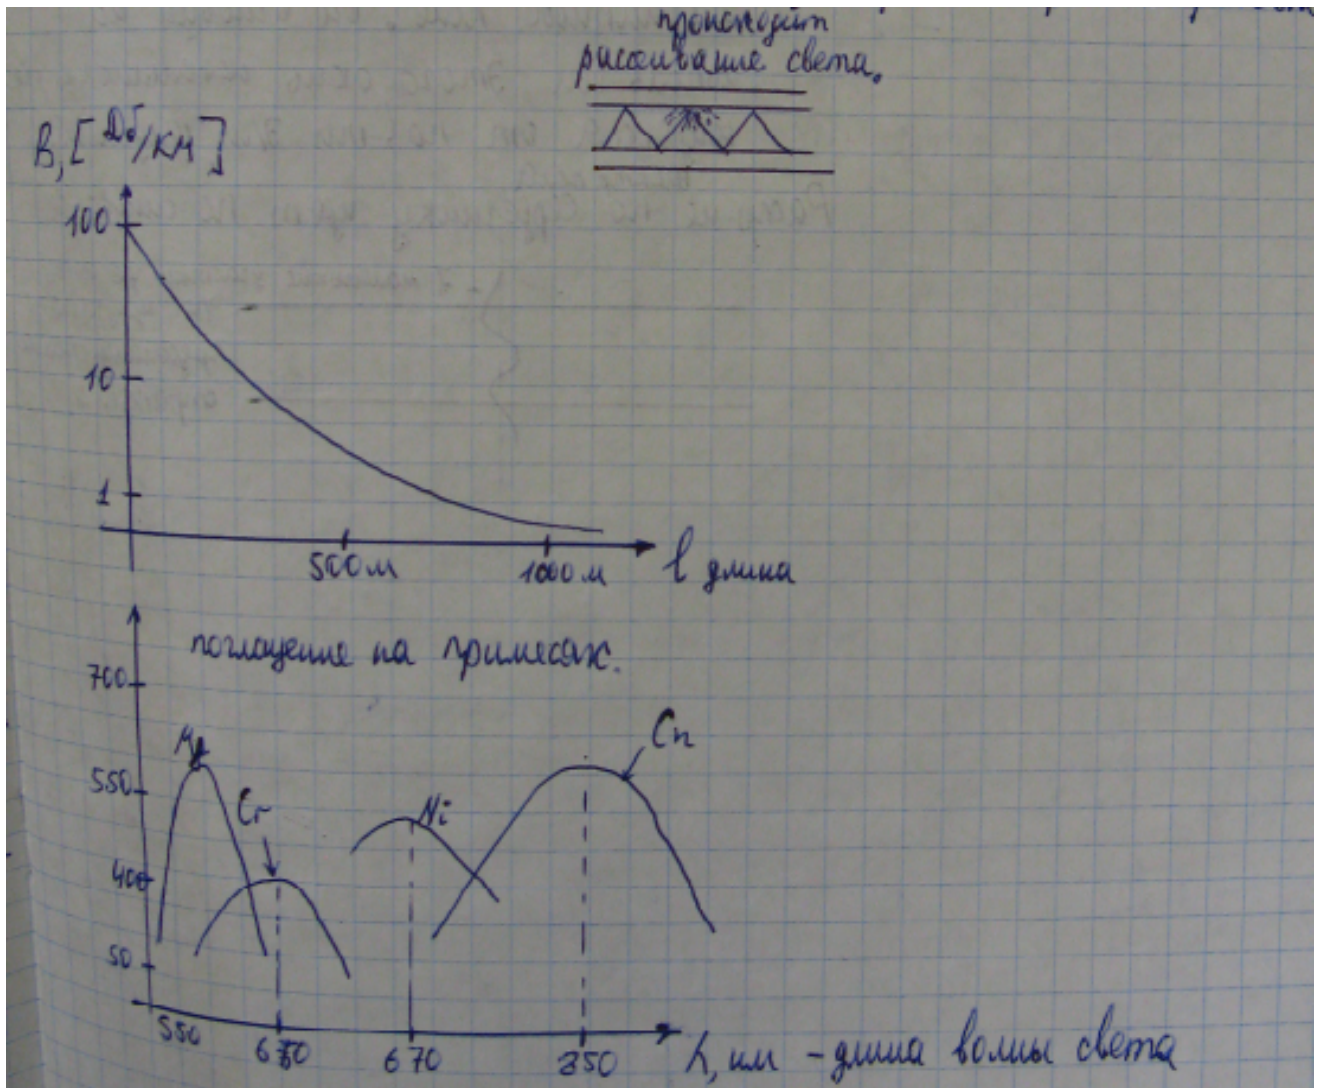 происходит
рассеивание света.
B, [Дб/км]
100
10
1
500м
1000м
l длина
поглощение на примесях.
700
550
400
50
Cr
Ni
Cn
550
670
850
λ, нм - длина волны света